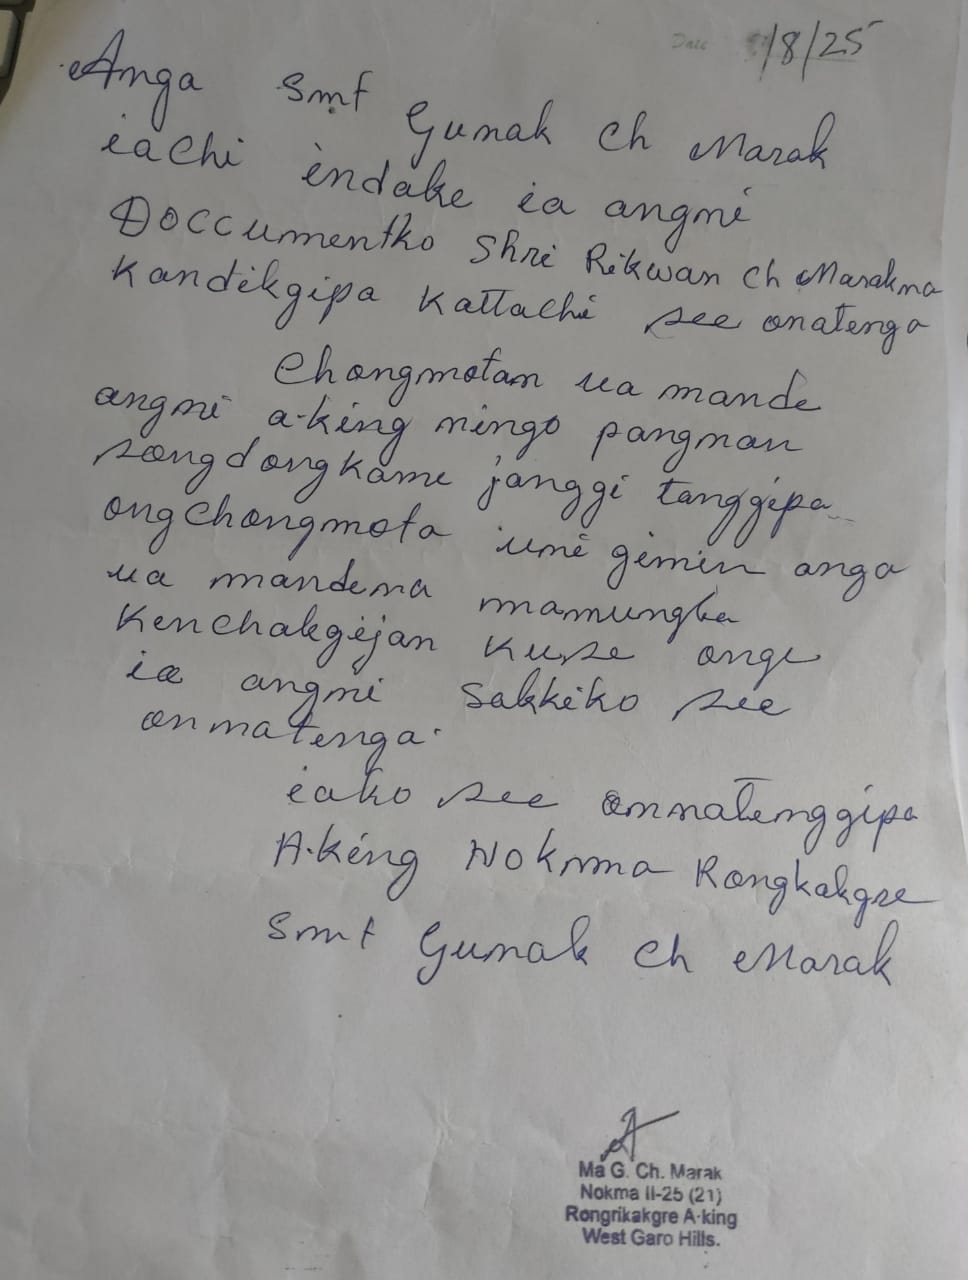 Date /8/25
Anga Smt Gunak Ch Marak
iachi indake ia angni
Doccumentko Shri Rikwan Ch Marakna
Kandikgipa Kattachi see onatenga
Chongmotan ua mande
angni a·king ningo pangnan
songdongkame janggi tanggipa
ongchongmota uni gimin anga
ua mandena mamungba
Kenchakgijan Kuse onge
ia angni Sakkiko see
onnatenga.
iako see onnatenggipa
A·king Nokma Rongkakgre
Smt Gunak Ch Marak
Ma G. Ch. Marak
Nokma II-25 (21)
Rongrikakgre A·king
West Garo Hills.